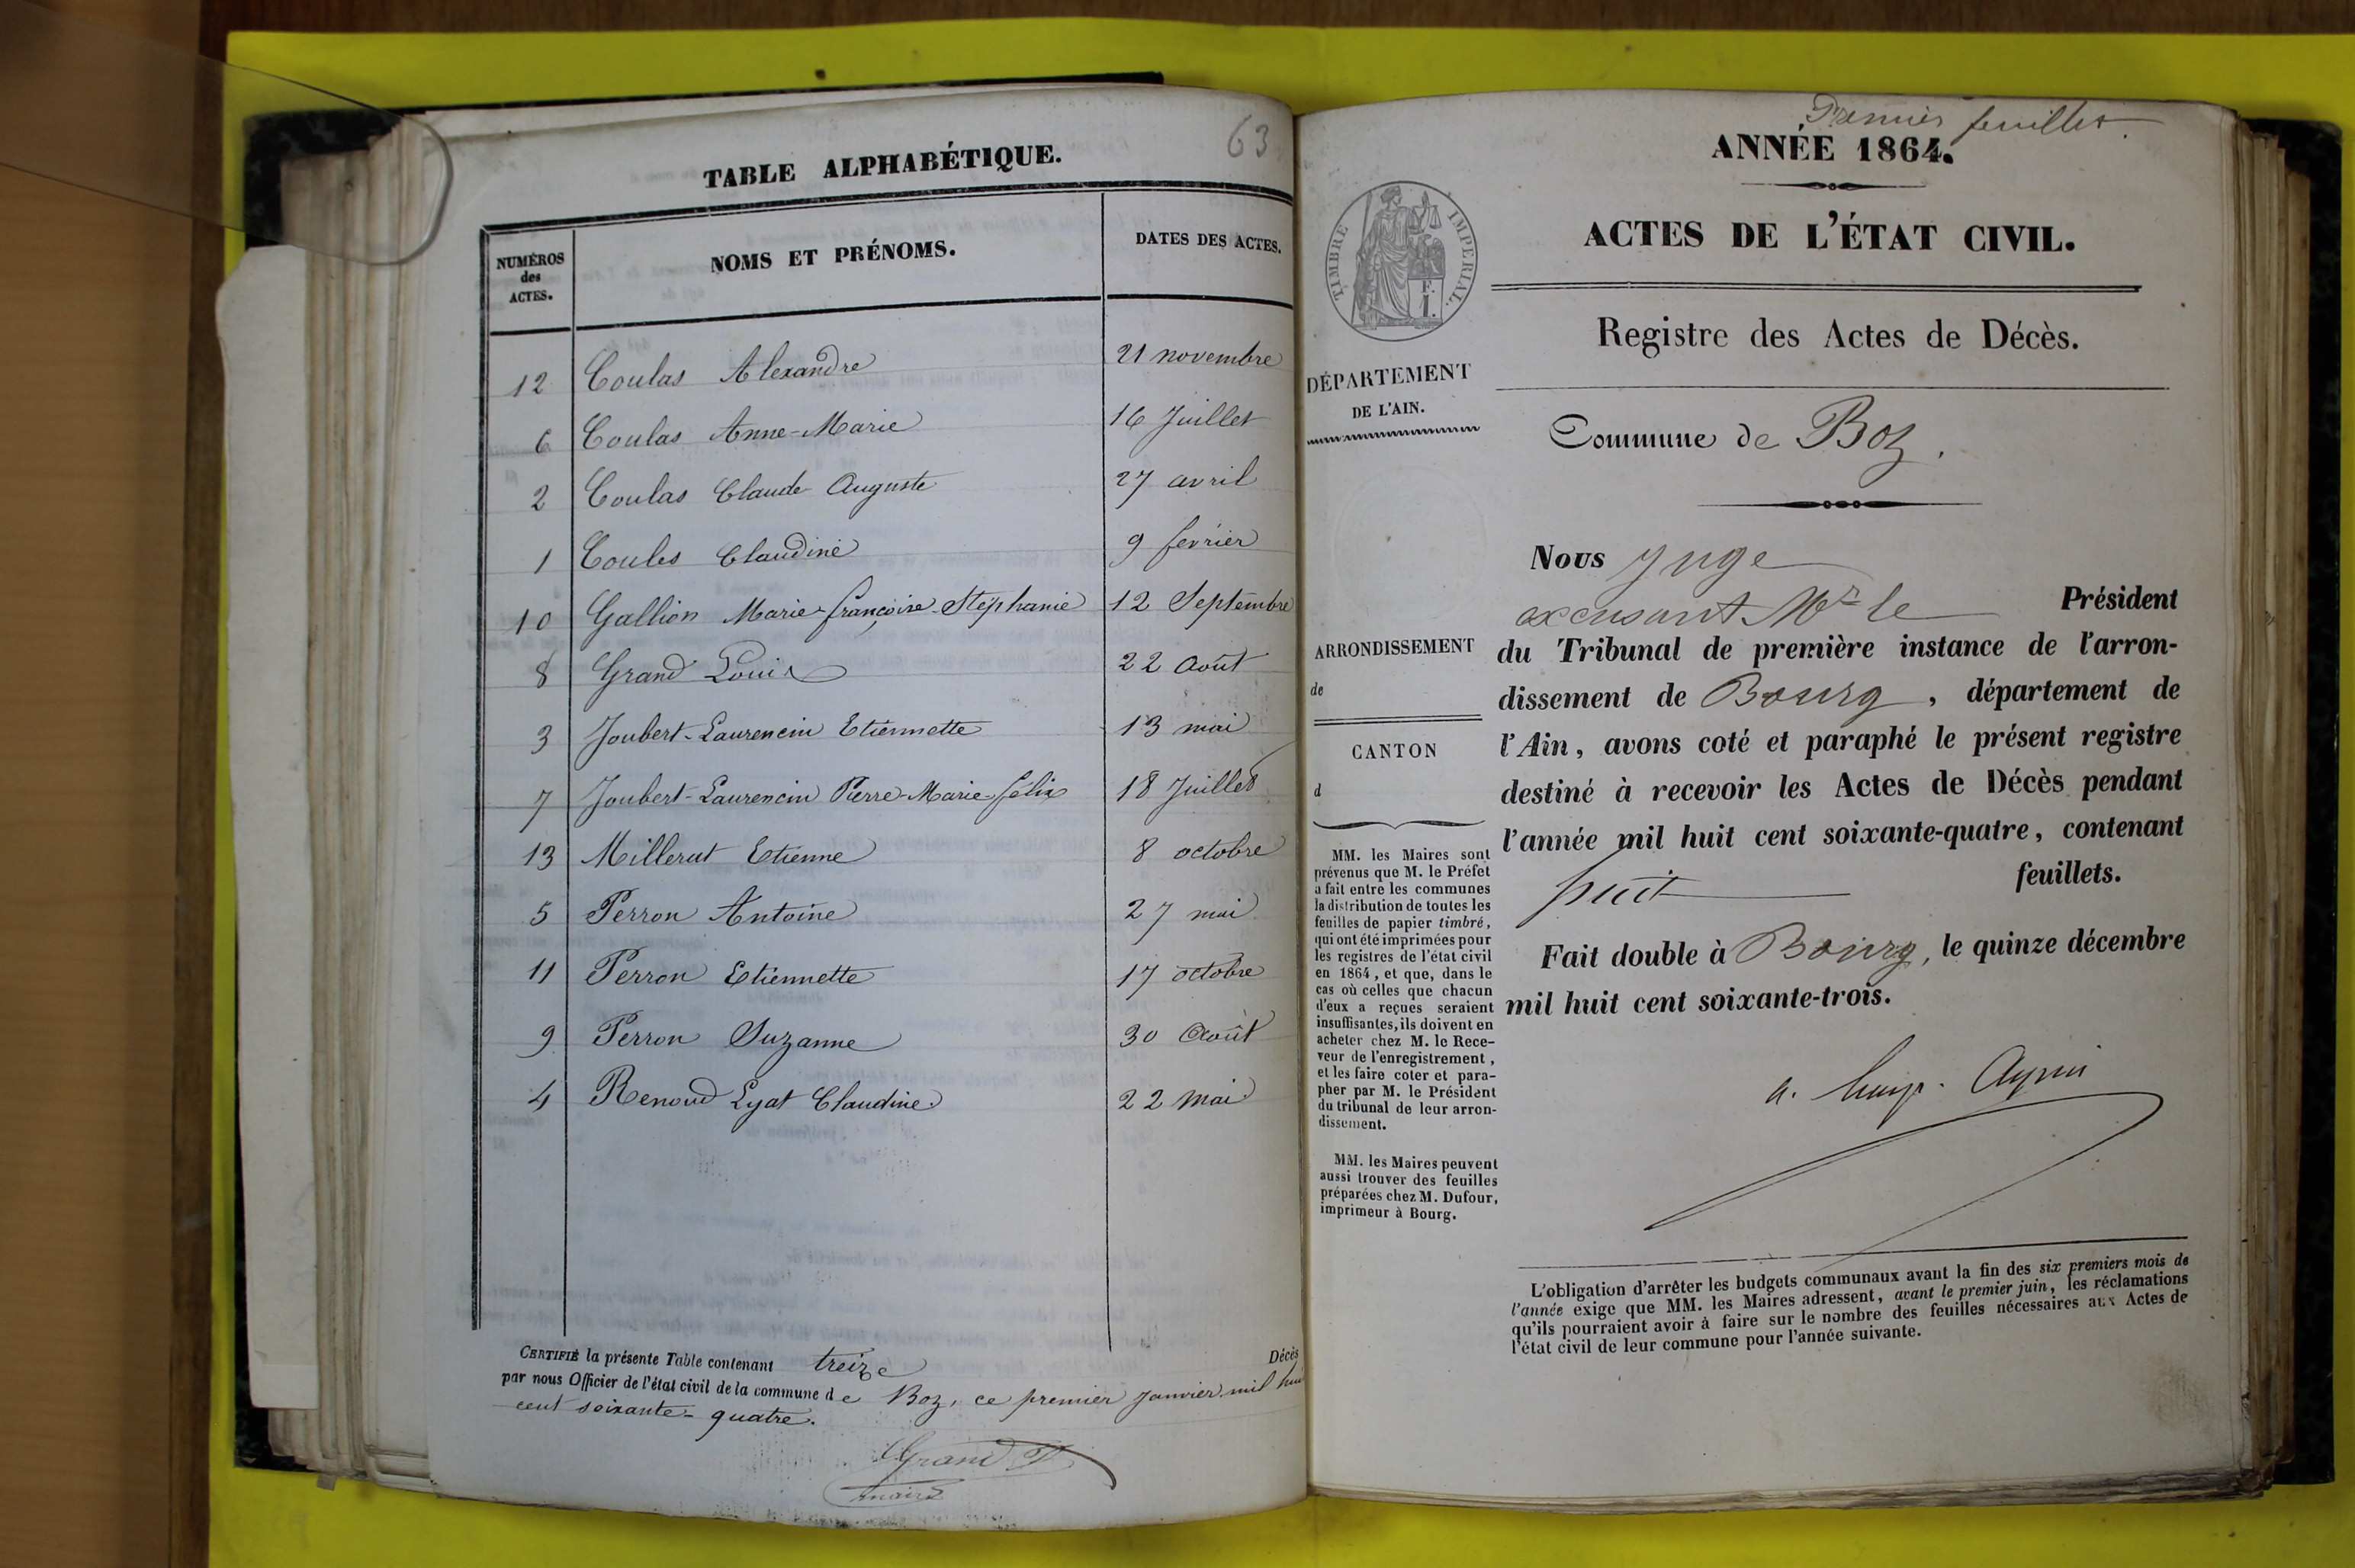 63
TABLE ALPHABÉTIQUE.
NUMÉROS des ACTES. NOMS ET PRÉNOMS. DATES DES ACTES.
12 Coulas Alexandre 21 novembre
6 Coulas Anne-Marie 16 Juillet
2 Coulas Claude Auguste 27 avril
1 Coulas Claudine 9 février
10 Gallion Marie-françoise-Stéphanie 12 Septembre
8 Grand Louis 22 Août
3 Joubert-Laurencin Etiennette 13 mai
7 Joubert-Laurencin Pierre-Marie-félix 18 Juillet
13 Millerat Etienne 8 octobre
5 Perron Antoine 27 mai
11 Perron Etiennette 17 octobre
9 Perron Suzanne 30 Août
4 Renoud Lyat Claudine 22 Mai
CERTIFIÉ la présente Table contenant treize Décès
par nous Officier de l'état civil de la commune de Boz, ce premier janvier mil huit
cent soixante-quatre.
Grand
maire
Premier feuillet.
ANNÉE 1864.
ACTES DE L'ÉTAT CIVIL.
TIMBRE IMPÉRIAL.
Registre des Actes de Décès.
DÉPARTEMENT
DE L'AIN.
Commune de Boz.
ARRONDISSEMENT
de
CANTON
d
MM. les Maires sont
prévenus que M. le Préfet
a fait entre les communes
la distribution de toutes les
feuilles de papier timbré,
qui ont été imprimées pour
les registres de l'état civil
en 1864, et que, dans le
cas où celles que chacun
d'eux a reçues seraient
insuffisantes, ils doivent en
acheter chez M. le Rece-
veur de l'enregistrement,
et les faire coter et para-
pher par M. le Président
du tribunal de leur arron-
dissement.
MM. les Maires peuvent
aussi trouver des feuilles
préparées chez M. Dufour,
imprimeur à Bourg.
Nous Juge
excusant Mr le Président
du Tribunal de première instance de l'arron-
dissement de Bourg, département de
l'Ain, avons coté et paraphé le présent registre
destiné à recevoir les Actes de Décès pendant
l'année mil huit cent soixante-quatre, contenant
huit feuillets.
Fait double à Bourg, le quinze décembre
mil huit cent soixante-trois.
L'obligation d'arrêter les budgets communaux avant la fin des six premiers mois de
l'année exige que MM. les Maires adressent, avant le premier juin, les réclamations
qu'ils pourraient avoir à faire sur le nombre des feuilles nécessaires aux Actes de
l'état civil de leur commune pour l'année suivante.